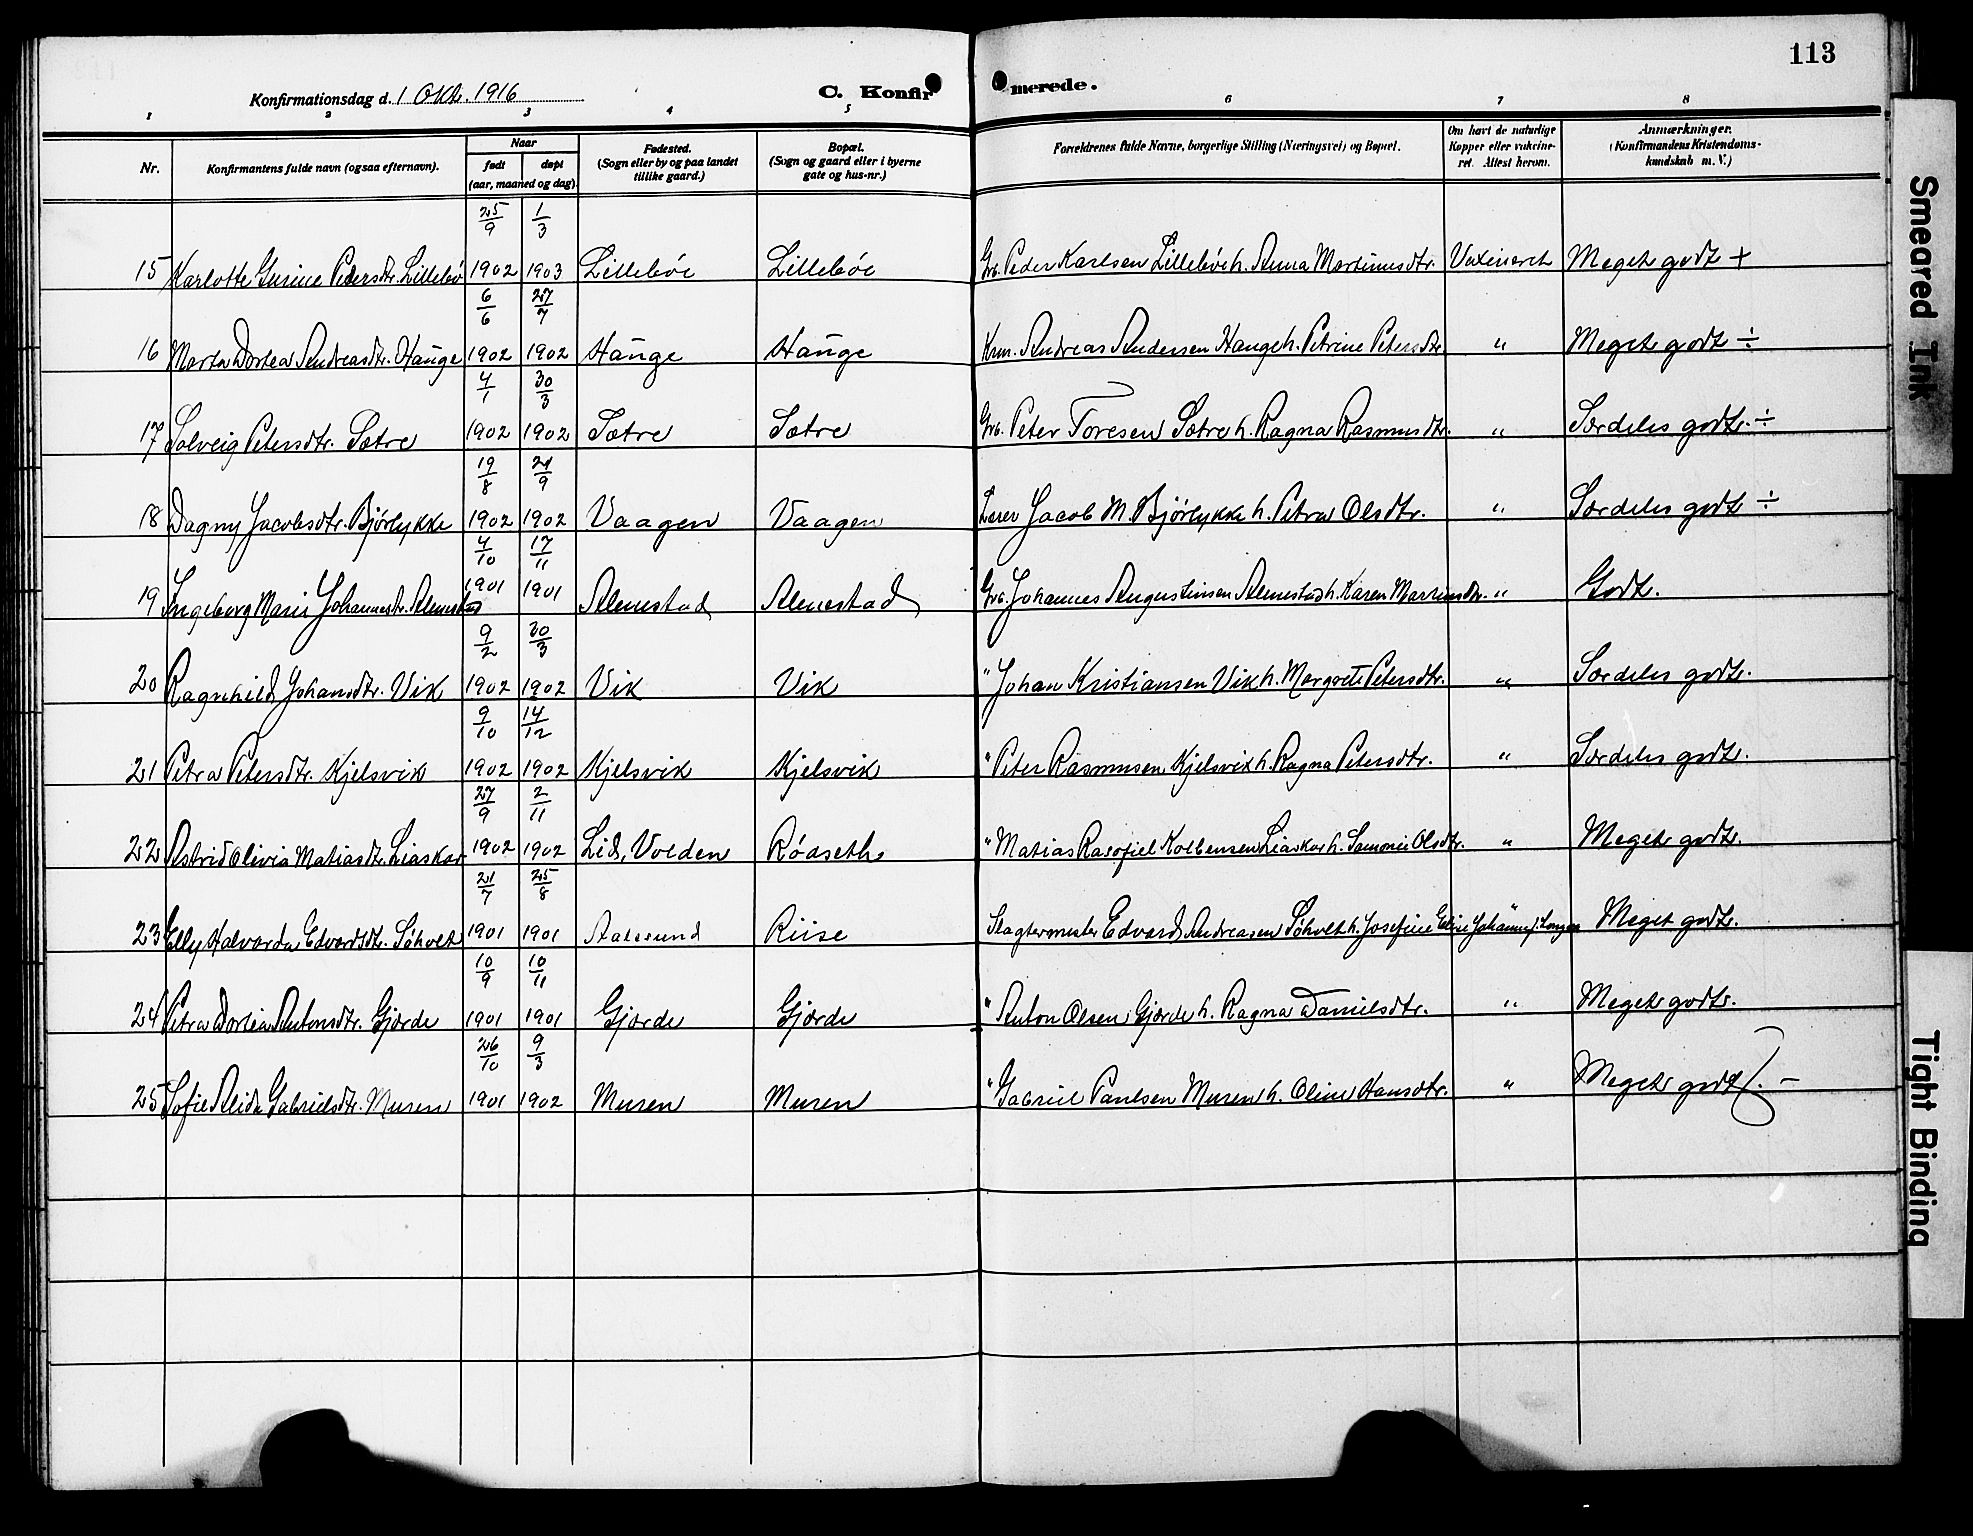 113
Konfirmationsdag d. 1 Okt. 1916
C. Konfir merede.
1 2 3 4 5 6 7 8
Nr.
Konfirmantens fulde navn (ogsaa efternavn).
Naar
født døpt
(aar, maaned og dag)
Fødested.
(Sogn eller by og paa landet
tillike gaard.)
Bopæl.
(Sogn og gaard eller i byerne
gate og hus-nr.)
Forældrenes fulde Navne, borgerlige Stilling (Næringsvei) og Bopæl.
Om havt de naturlige
Kopper eller vakcine-
ret. Attest herom.
Anmærkninger.
(Konfirmandens Kristendoms-
kundskab m. V.)
25/9 1/3
15 Karlotte Gurine Pedersdtr. Lillebø 1902 1903 Lillebøe Lillebøe Grb. Peder Karlsen Lillebøe h. Anna Martinusdtr. Vaxineret Meget godt +
6/6 27/7
16 Marta Dortea Andreasdtr. Hauge 1902 1902 Hauge Hauge Krm. Andreas Andersen Hauge h. Petrine Petersdtr. " Meget godt ÷
4/1 30/3
17 Solveig Petersdtr. Sætre 1902 1902 Sætre Sætre Grb. Peter Toresen Sætre h. Ragna Rasmusdtr. " Særdeles godt. ÷
19/8 21/9
18 Dagny Jacobsdtr. Bjørlykke 1902 1902 Vaagen Vaagen Lærer Jacob M. Bjørlykke h. Petra Olsdtr. " Særdeles godt ÷
4/10 17/11
19 Ingeborg Marie Johannesdtr. Almestad 1901 1901 Almestad Almestad Grb. Johannes Augustinsen Almestad h. Karen Martinsdtr. " Godt.
9/2 30/3
20 Ragnhild Johansdtr. Vik 1902 1902 Vik Vik " Johan Kristiansen Vik h. Margrete Petersdtr. " Særdeles godt.
9/10 14/12
21 Petra Petersdtr. Kjelsvik 1902 1902 Kjelsvik Kjelsvik " Peter Rasmusen Kjelsvik h. Ragna Petersdtr. " Særdeles godt.
27/9 2/11
22 Astrid Olivia Matiasdtr. Liaskar 1902 1902 Lid, Volden Rødseth " Matias Kolbensen Liaskar h. Olsdtr. " Meget godt.
21/7 25/8
23 Elly Halvarda Edvardsdtr. Søholt 1901 1901 Aalesund Riise Slagtermester Edvard Andreasen Søholt h. Josefine Eline " Meget godt.
10/9 10/11
24 Petra Dortea Antonsdtr. Gjørde 1901 1901 Gjørde Gjørde " Anton Olsen Gjørde h. Ragna Danielsdtr. " Meget godt.
26/10 9/3
25 Sofie Alida Gabrielsdtr. Muren 1901 1902 Muren Muren " Gabriel Paulsen Muren h. Oline Hansdtr. " Meget godt. –
Smeared Ink
Tight Binding